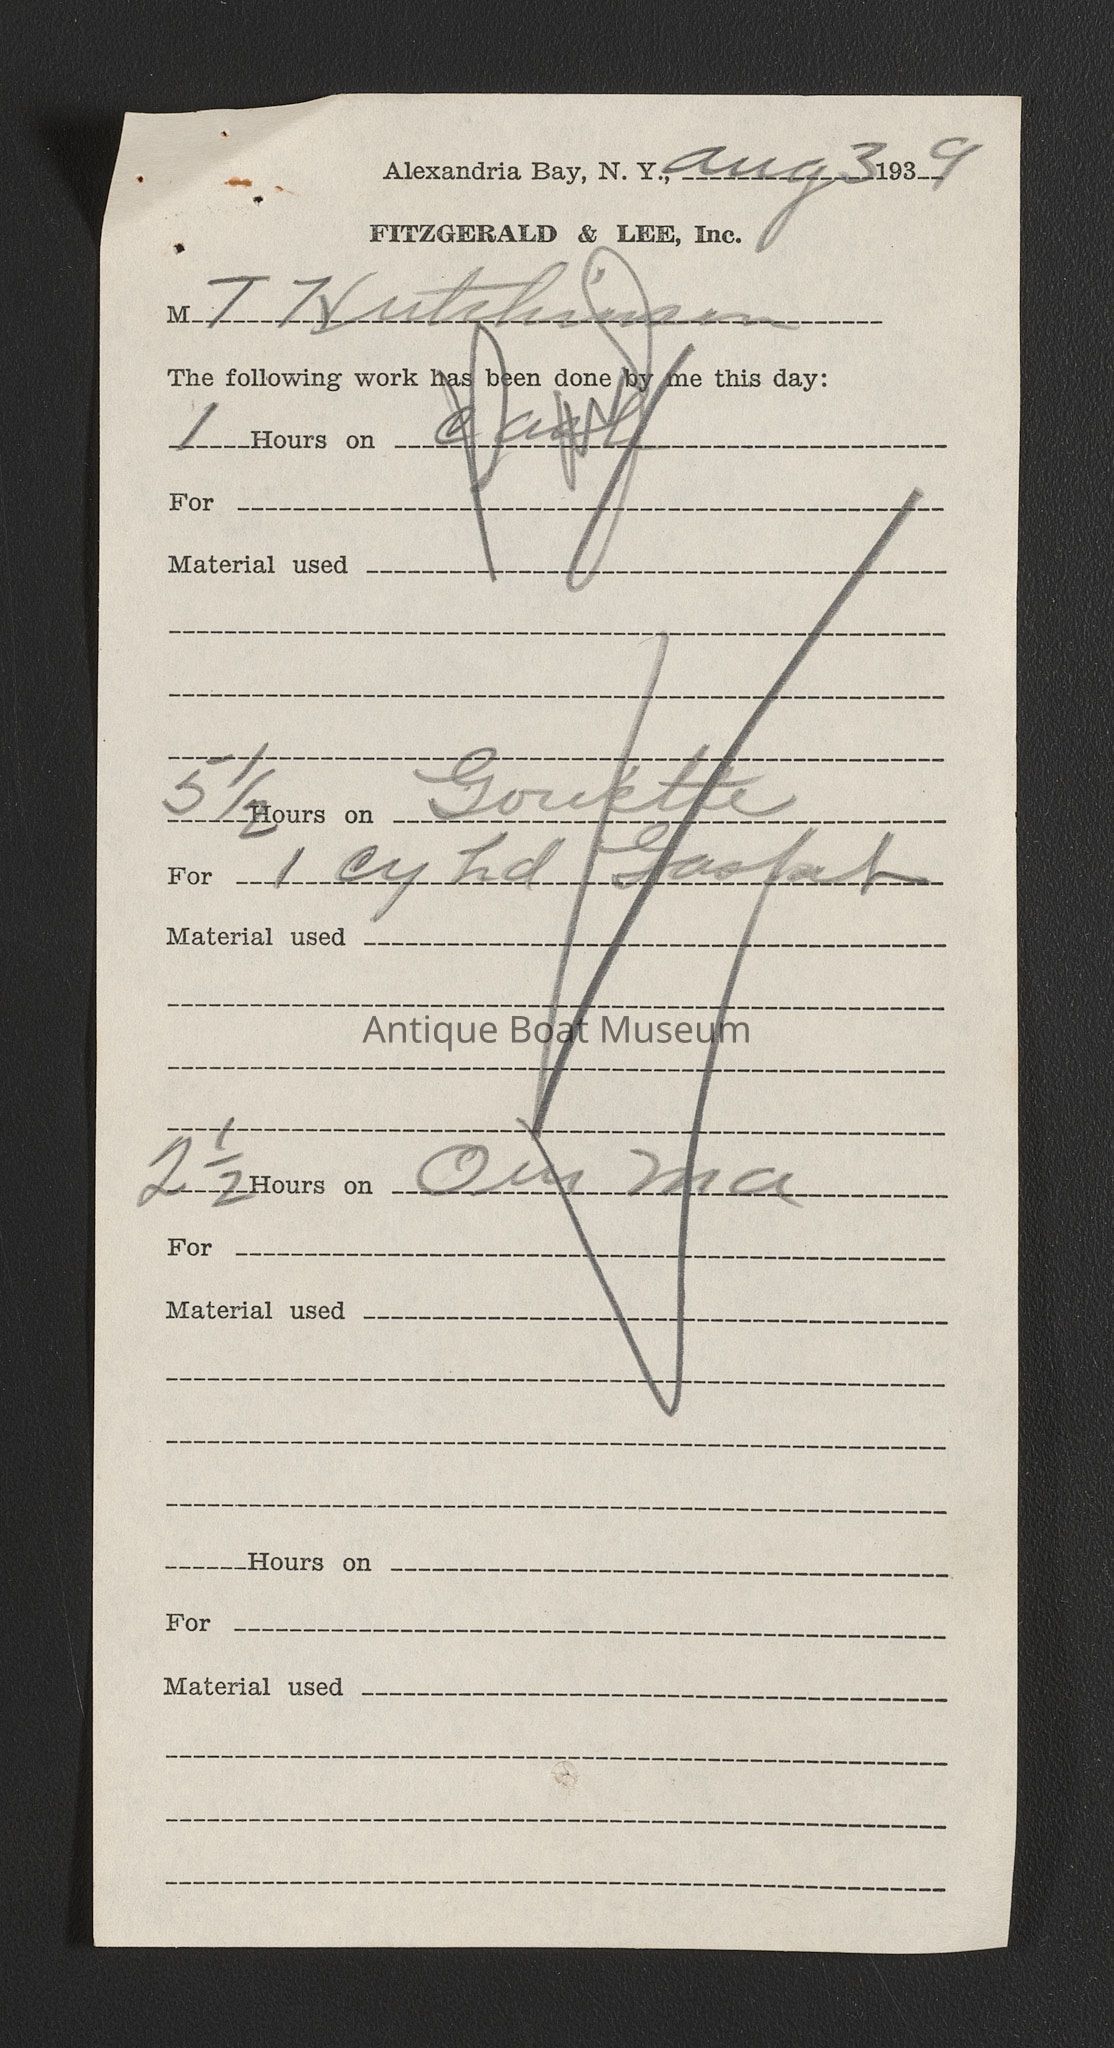 Alexandria Bay, N. Y., Aug 3 1939
FITZGERALD & LEE, Inc.
M T Hutchinson
The following work has been done by me this day:
1 Hours on
For
Material used
5 1/2 Hours on
For 1 cy hd Gasket
Material used
Antique Boat Museum
2 1/2 Hours on
For
Material used
Hours on
For
Material used